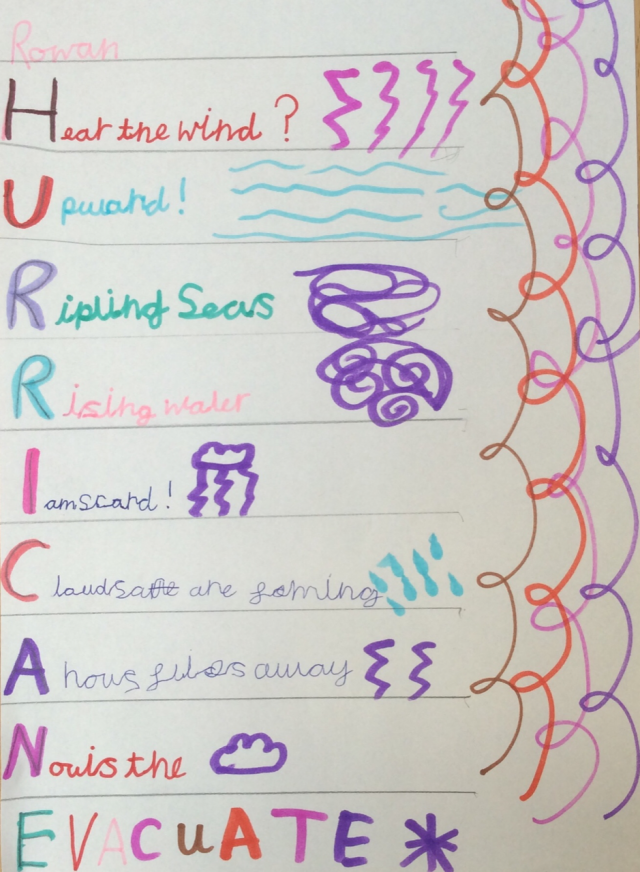 Rowan
Hear the wind?
Upward!
Ripling Seas
Rising water
I am scard!
Clouds are forming
A hous flies away
Now is the
EVACUATE